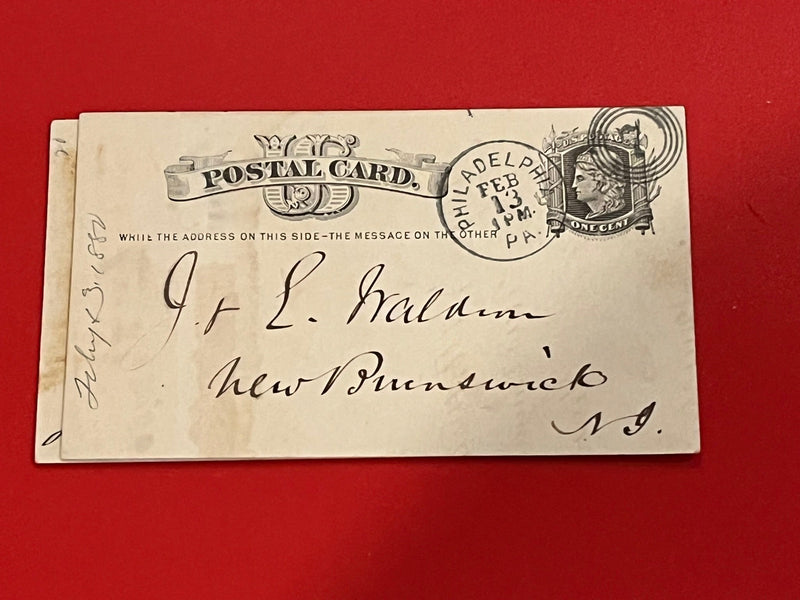 US
POSTAL CARD.
WRITE THE ADDRESS ON THIS SIDE-THE MESSAGE ON THE OTHER
PHILADELPHIA
FEB
13
1PM.
PA.
U.S. POSTAGE
ONE CENT
J. & L. Waldron
New Brunswick
NJ.
13. 1880